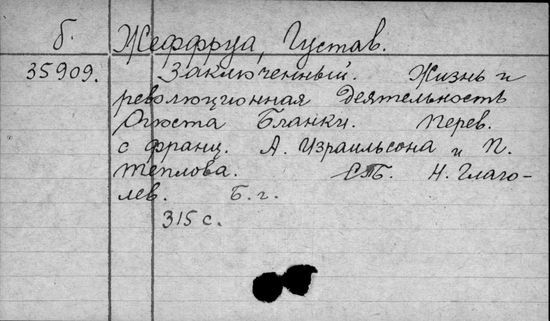 б. Жеффруа, Густав.
35909. Заключенный. Жизнь и
революционная деятельность
Огюста Бланки. Перев.
с франц. А. Израильсона и П.
Теплова. СПБ. Н. Глаго-
лев. Б. г.
315 с.